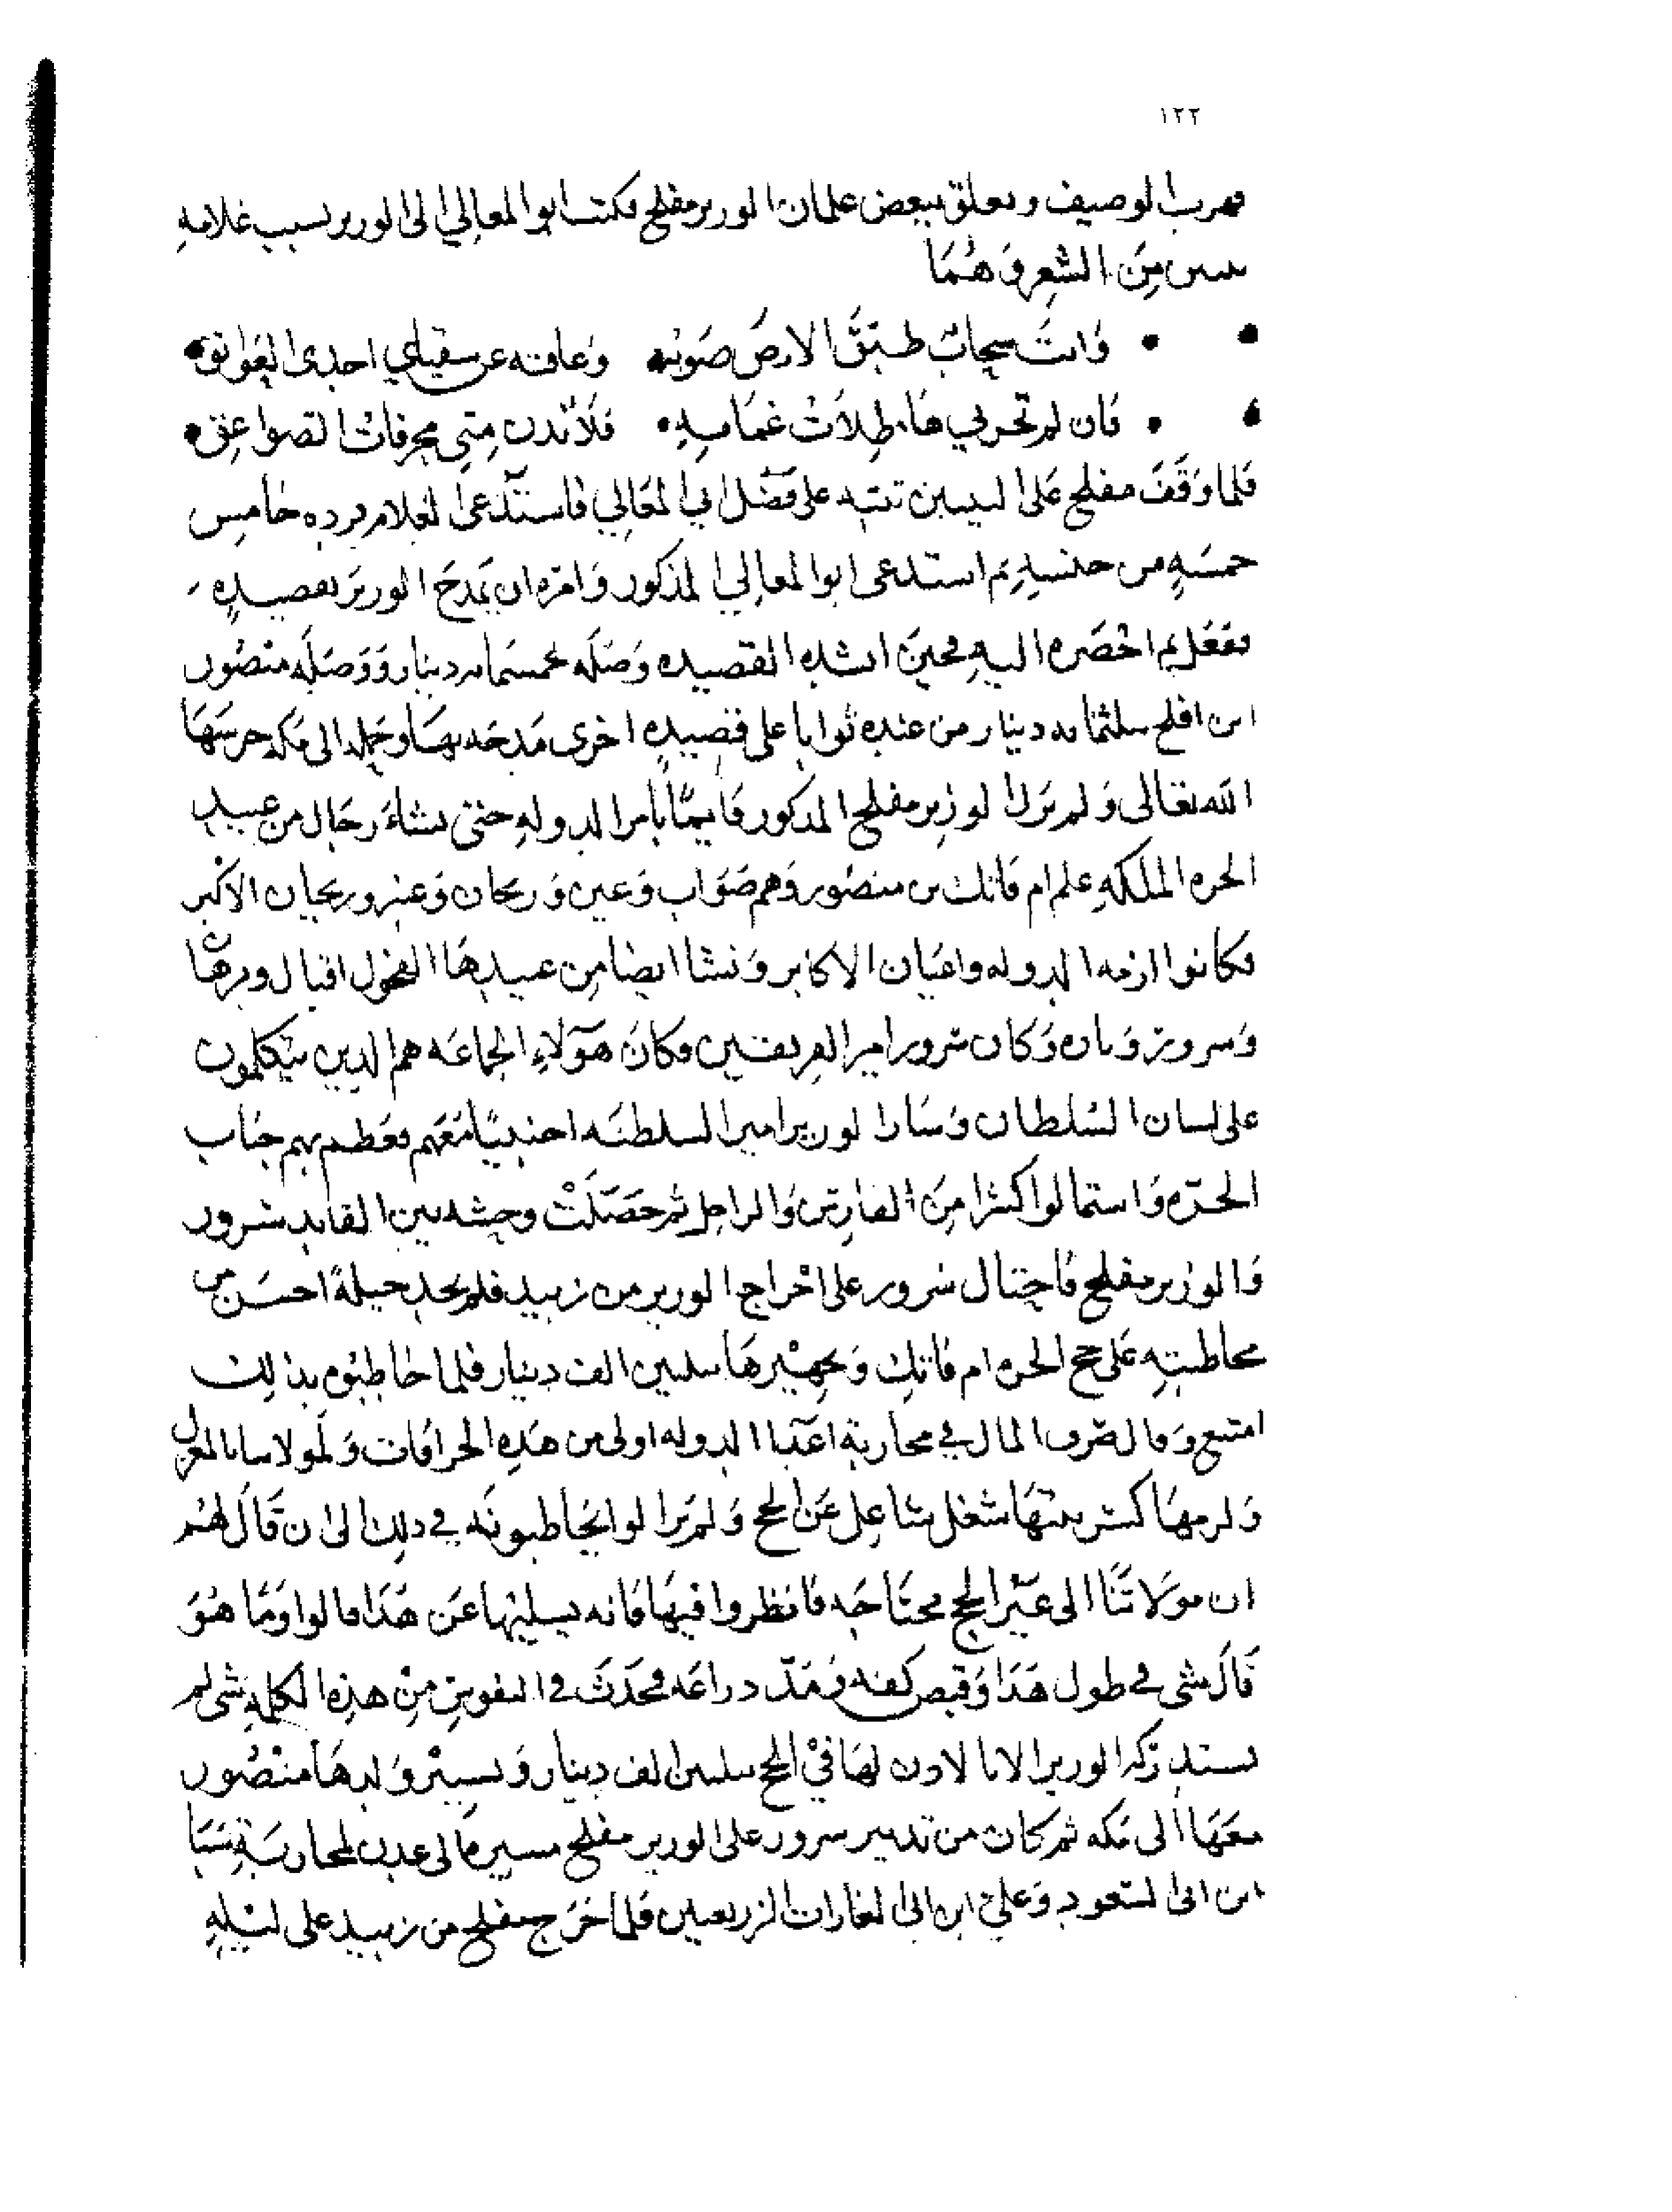 ١٢٢
فهرب الوصيف وتعلق ببعض غلمان الوزير مفلح فكتب ابو المعالي الى الوزير بسبب غلامه
ببيتين من الشعر وهما
وانت سحاب طبق الارض صوبه وعاقته عن سقياي احدى العوائق
فان لم تجد لي هاطلات غمامه فلا تدن مني محرقات الصواعق
فلما وقف مفلح على البيتين تنبه على فضل ابي المعالي فاستدعى الغلام فرده خامس
خمسه من جنسه ثم استدعى ابو المعالي المذكور وامره ان يمدح الوزير بقصيده
ففعل ثم احضره اليه فحين انشده القصيده وصله بخمسمايه دينار ووصله منصور
ابن افلح بثلثمايه دينار من عنده ثوابا على قصيده اخرى مدحه بها وحمله الى مكه حرسها
الله تعالى ولم يزل الوزير مفلح المذكور قايما بامر الدوله حتى نشاء رجال من عبيد
الحره الملكه علم ام فاتك بن منصور وهم صواب وعين وريحان وعنبر وريحان الاكبر
فكانوا ازمه الدوله واعيان الاكابر ونشا ايضا من عبيدها الفحول اقبال وبرهان
وسرور وباره وكان سرور امير الفريقين فكان هؤلاء الجماعه هم الذين يتكلمون
على لسان السلطان وسار الوزير امير السلطنه اجنبيا معهم فعظم بهم جناب
الحره واستمالوا كثيرا من الفارس والراجل ثم حصلت وحشه بين القايد سرور
والوزير مفلح فاحتال سرور على اخراج الوزير من زبيد فلم يجد حيلة احسن من
مخاطبته على حج الحره ام فاتك وتجهيزها بثلثين الف دينار فلما خاطبوه بذلك
امتنع وقال صرف المال في محاربة اعدا الدوله اولى من هذه الخرافات ولمولاتنا بالمغزل
ولزمها كسر بيتها شغل شاغل عن الحج ولم يزالوا يخاطبونه في ذلك الى ان قال لهم
ان مولاتنا الى غير الحج محتاجه فانظروا فيها فانه يسليها عن هذا قالوا وما هو
قال شى في طول هذا وقبض كفه ومد ذراعه فحدث في النفوس من هذه الكلمه شى لم
يستدركه الوزير الا بالاذن لها في الحج بثلثين الف دينار وتسيير ولدها منصور
معها الى مكه ثم كان من تدبير سرور على الوزير مفلح مسيره الى عدن لمحاربة سبا
ابن ابى السعود وعلي ابن ابى الغارات الزريعيين فلما خرج مفلح من زبيد على ليله